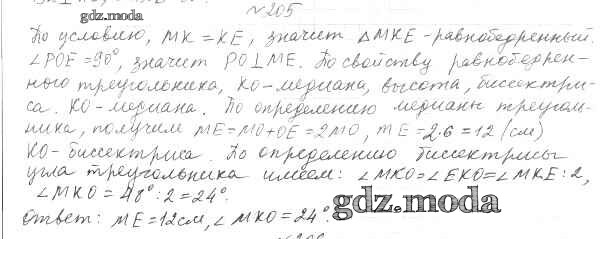 №205
gdz.moda
По условию, MK = KE, значит △MKE - равнобедренный.
∠POE = 90°, значит PO⊥ME. По свойству равнобедрен-
ного треугольника, KO - медиана, высота, биссектри-
са. KO - медиана. По определению медианы треуголь-
ника, получим ME = MO + OE = 2MO, ME = 2·6 = 12 (см)
KO - биссектриса. По определению биссектрисы
угла треугольника имеем: ∠MKO = ∠EKO = ∠MKE : 2,
∠MKO = 48° : 2 = 24°.
Ответ: ME = 12см, ∠MKO = 24°.
gdz.moda